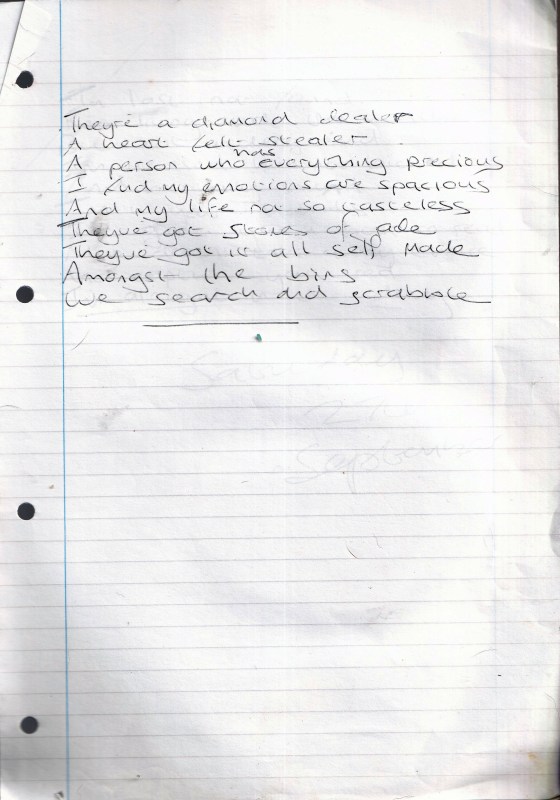 They're a diamond dealer
A heart felt stealer
A person who has everything precious
I find my emotions are spacious
And my life not so tasteless
They've got stores of jade
They've got it all self made
Amongst the bins
We search and scrabble
Saturday
September